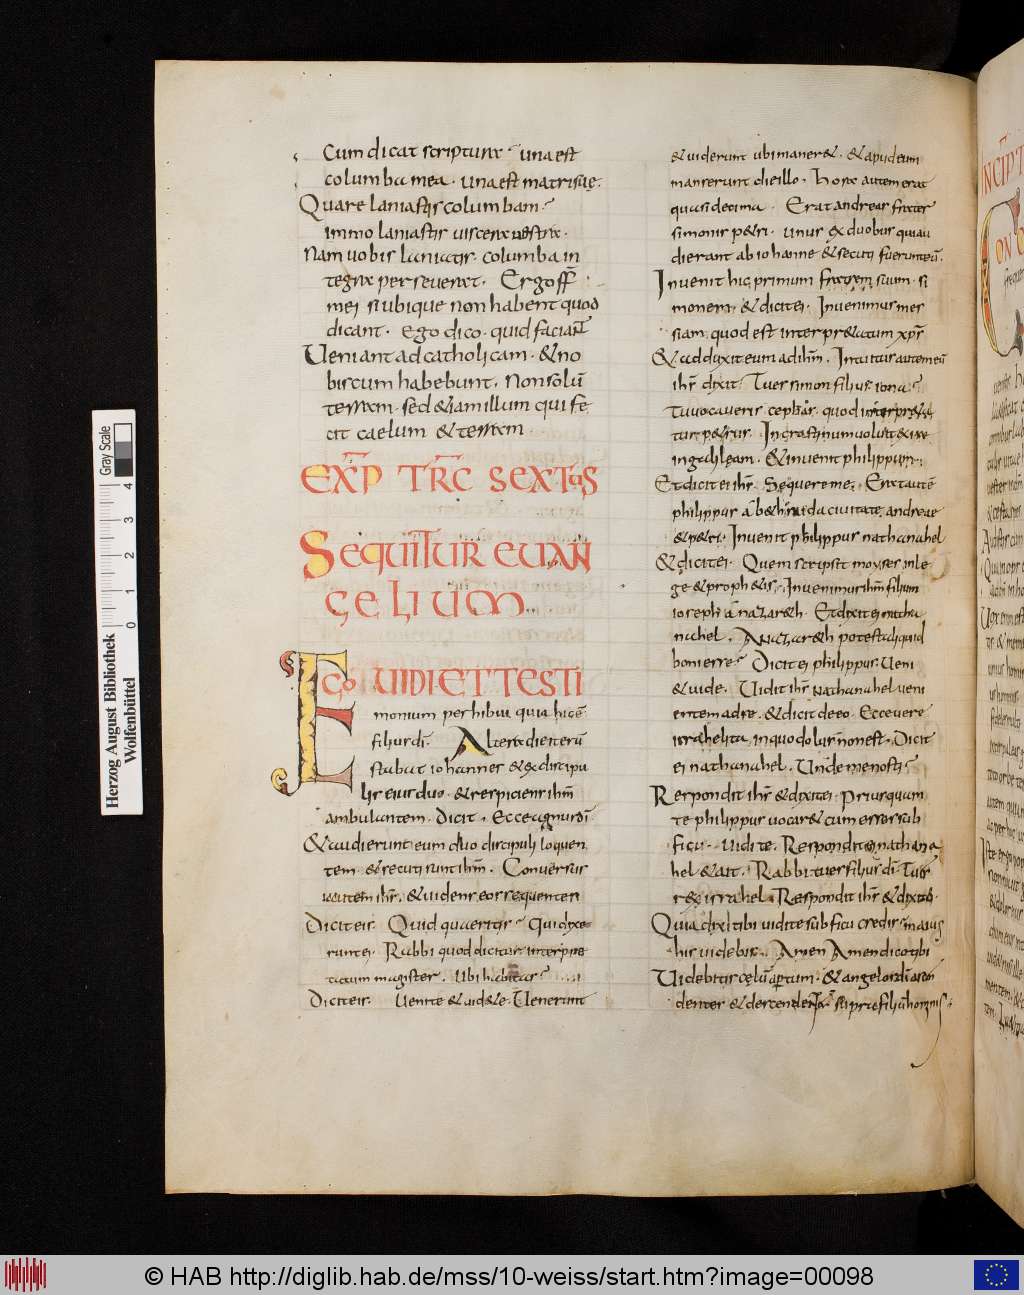 Cum dicat scriptura · una est
columba mea · una est matri suæ ·
Quare laniastis columbam ·
immo laniastis viscera vestra ·
Nam vobis laniatis · columba in
tegra perseverat · Ergo ff
mei si ubique non habent quod
dicant · ego dico · quid faciant
Veniant ad catholicam · & no
biscum habebunt · Non solū
terram · sed & iam illum qui fe
cit caelum & terram ·
EXP TRC SEXTUS
SEQUITUR EUAN
GELIUM
EGO VIDI ET TESTI
monium perhibui quia hic ē
filius dī · Altera die iterū
stabat iohannes & ex discipu
lis eius duo · & respiciens ihm
ambulantem · Dicit · Ecce agnus dī
& audierunt eum duo discipuli loquen
tem · & secuti sunt ihm · Conversus
autem ihs · & videns eos sequentes
Dicit eis · Quid quaeritis · Qui dixe
runt ei · Rabbi quod dicitur interpre
tatum magister · Ubi habitas ·
Dicit eis · Venite & vid&e · Venerunt
& viderunt ubi maner& · & apud eum
manserunt die illo · Hora autem erat
quasi decima · Erat andreas frater
simonis p&ri · unus ex duobus qui au
dierant ab iohanne & secuti fuerunt eū ·
Invenit hic primum fratrem suum · si
monem · & dicit ei · Invenimus mes
siam quod est interpr&atum xps
& adduxit eum ad ihm · Intuitus autem eū
ihs dixit · Tu es simon filius iona ·
Tu vocaveris cephas · quod interpr&a
tur p&rus · In crastinum voluit exire
in galileam · & invenit philippum ·
Et dicit ei ihs · Sequere me · Erat autē
philippus a b&hsaida civitate andreae
& p&ri · Invenit philippus nathanahel
& dicit ei · Quem scripsit moyses in le
ge & proph&is · Invenimus ihm filium
ioseph a nazar&h · Et dixit ei natha
nahel · A nazar&h potest aliquid
boni esse · Dicit ei philippus · Veni
& vide · Vidit ihs nathanahel veni
entem ad se · & dicit de eo · Ecce vere
israhelita in quo dolus non est · Dicit
ei nathanahel · Unde me nosti ·
Respondit ihs & dixit ei · Priusquam
te philippus vocar& cum esses sub
ficu · vidi te · Respondit ei nathana
hel & ait · Rabbi tu es filius dī · Tu es
rex israhel · Respondit ihs & dixit ei
Quia dixi tibi vidi te sub ficu credis · maius
his videbis · Amen Amen dico tibi
Videbitis cęlū apertum · & angelos dī ascen
dentes & descendentes supra filiū hominis
Gray Scale
0 1 2 3 4
Herzog August Bibliothek
Wolfenbüttel
© HAB http://diglib.hab.de/mss/10-weiss/start.htm?image=00098